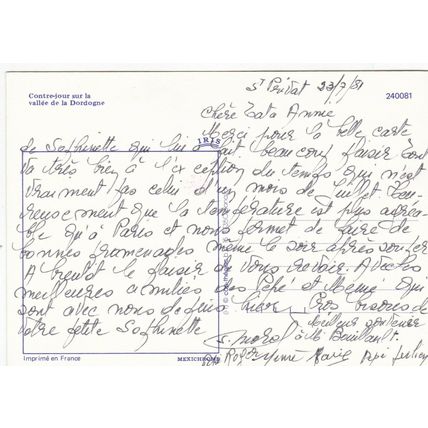 St Privat 23/7/81
Contre-jour sur la
vallée de la Dordogne
240081
Chère Tata Annie
Merci pour la belle carte
de Sophinette qui lui a fait beaucoup plaisir Tout
va très bien à l'exception du temps qui n'est
vraiment pas celui d'un mois de juillet Heu
reusement que la température est plus agréa
ble qu'à Paris et nous permet de faire de
bonnes promenades même le soir après souper
A bientôt le plaisir de vous revoir. Avec les
meilleures amitiés des Pépé et Mémé qui
sont avec nous depuis hier Gros bisous de
votre petite Sophinette
IRIS
Meilleur souvenir
à Me
Roger Mémé Marie Pépé
Imprimé en France
MEXICHROME